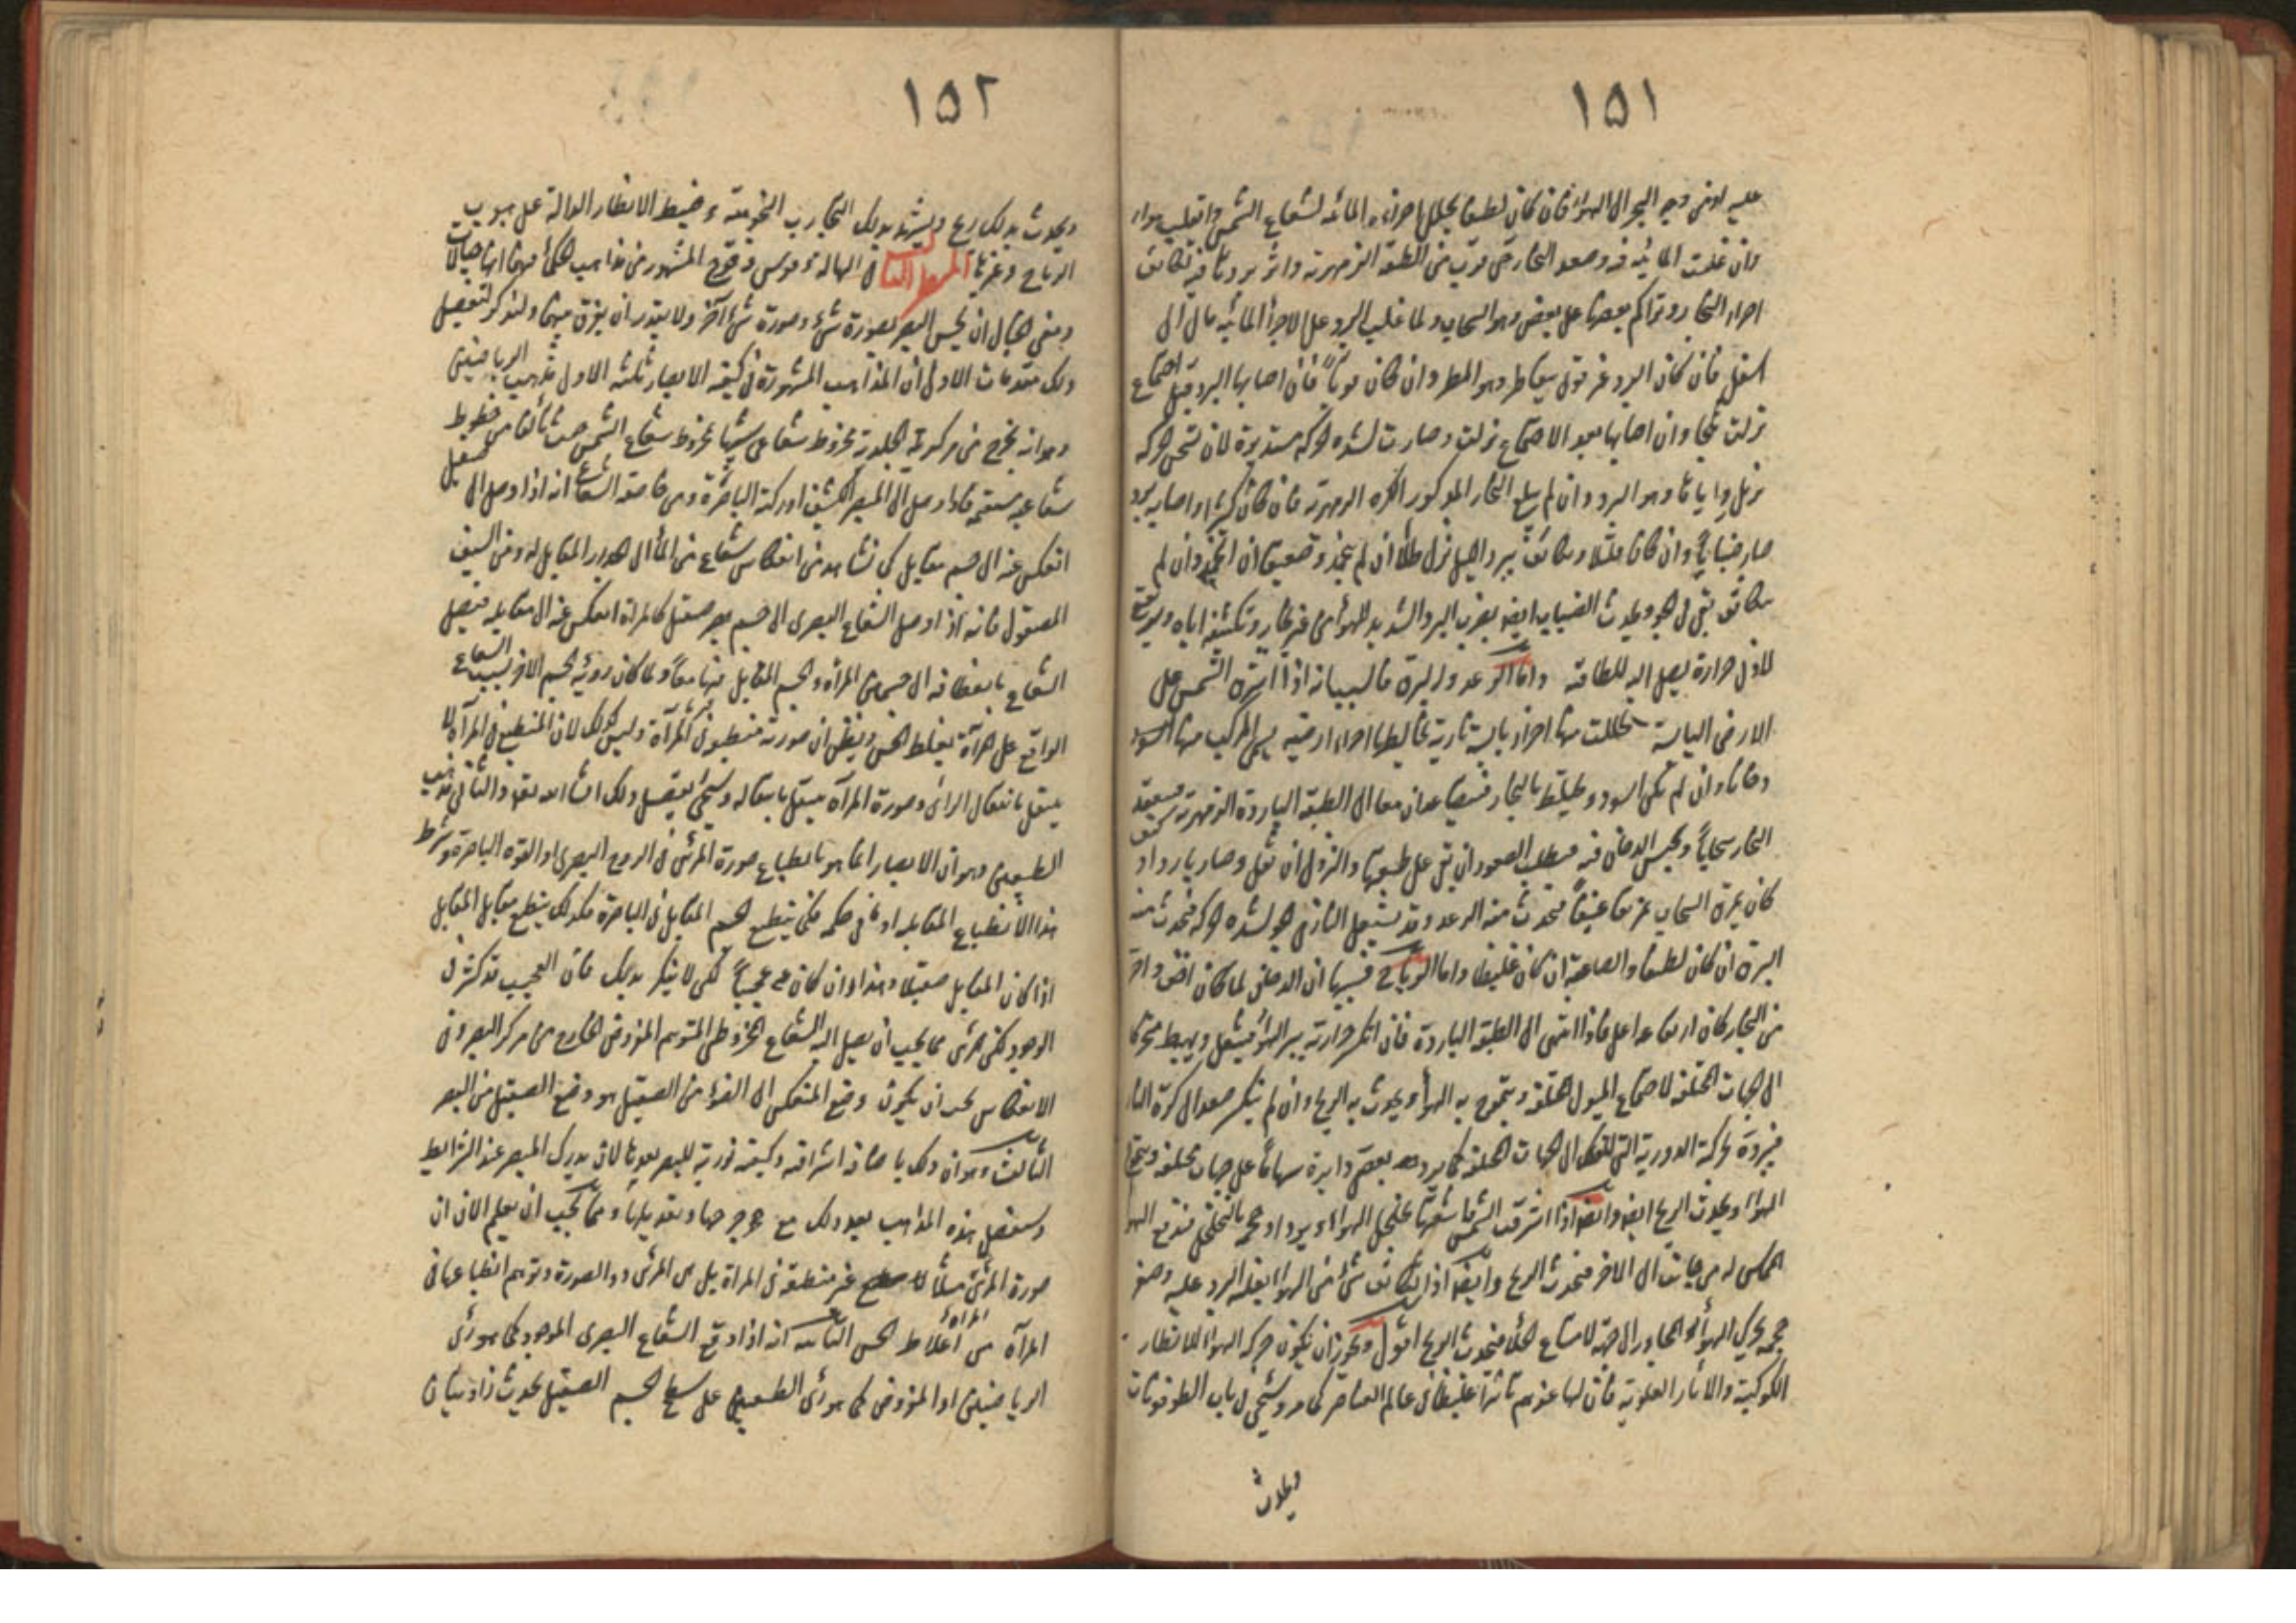 ١٥١
عليه او من وجه البحر الى الهواء فان كان لطيفا يحلل اجزاءه المائية لشعاع الشمس وانقلب هواء
وان غلبت المائية فيه وصعد البخار حتى قرب من الطبقة الزمهريرية واثر بردها فيه تكاثف
اجزاء البخار وتراكم بعضها على بعض وهو السحاب ولما غلب البرد على الاجزاء المائية مال الى
اسفل فان كان البرد غير قوى يتقاطر وهو المطر وان كان قويا فان اصابها البرد قبل اجتماع
نزلت ثلجا وان اصابها بعد الاجتماع نزلت وصارت لشدة الحركة مستديرة لان تسخن الحركة
زواياها وهو البرد وان لم يبلغ البخار المذكور الكرة الزمهريرية فان كان كثيرا واصابه برد
صار ضبابا وان كان قليلا وتكاثف ببرد الليل نزل طلا ان لم يجمد وصقيعا ان انجمد وان لم
يتكاثف بقى فى الجو ويحدث الضباب ايضا بضرب البرد الشديد للهواء من غير بخار وتكثيفه اياه ويرتفع
لادنى حرارة يصل اليه للطافته واما الرعد والبرق فالسبب انه اذا اشرق الشمس على
الارض اليابسة تحللت منها اجزاء يابسة نارية تخالطها اجزاء ارضية يسمى المركب منها
دخانا وان لم يكن اسود ويختلط بالبخار فيتصاعدان معا الى الطبقة الباردة الزمهريرية فينعقد
البخار سحابا ويحبس الدخان فيه فيطلب الصعود ان بقى على طبيعته والنزول ان ثقل وصار باردا و
كان يمزق السحاب تمزيقا عنيفا فيحدث منه الرعد وقد يشتعل النار لشدة الحركة فيحدث منه
البرق ان كان لطيفا والصاعقة ان كان غليظا واما الرياح فسببها ان الدخان لما كان اخف
من البخار كان ارتفاعه اعلى فاذا انتهى الى الطبقة الباردة فان انكسر حرارته ببرد الهواء فيثقل ويهبط متحركا
الى الجهات المختلفة لاجتماع الميول المختلفة ويتموج به الهواء ويحدث به الريح وان لم ينكسر صعد الى كرة النار
الحركة الدورية التى للفلك الى الجهات المختلفة دايرة سهاما على جهات مختلفة
الهواء ويحدث الريح ايضا وايضا اذا اشرقت الشمس باشعتها تخلخل الهواء ويزداد حجمه بالتخلخل فيدفع الهواء
المماس له من جانب الى الاخر فيحدث الريح وايضا اذا تكاثف شئ من الهواء لغلبة البرد عليه وصغر
حجمه تحرك الهواء المجاور الى جهته لامتناع الخلاء فيحدث الريح اقول ويجوز ان يكون حركة الهواء للانظار
الكوكبية والاثار العلوية فان لها عندهم تاثيرا عظيما فى عالم العناصر كما مر وسيجئ فى باب
ويحدث
١٥٢
ويحدث بذلك ريح ويشهد بذلك التجارب النجومية وضبط الانظار الدالة على هبوب
الرياح وغيرها المنهل الثامن فى الهالة وقوس وقزح المشهور من مذاهب الحكماء فيهما انها خيالات
ومعنى الخيال ان يحس البصر بصورة شئ وصورة شئ آخر ولا يقدر ان يفرق بينهما ولنذكر لتفصيل
ذلك مقدمات الاولى ان المذاهب المشهورة فى كيفية الابصار ثلثة الاول مذهب الرياضيين
وهو انه يخرج من مركز الجليدية مخروط شعاعى شبيها بمخروط شعاع الشمس خطوط
شعاعية مستقيمة فاذا وصل الى المبصر الكثيف ادركته الباصرة ومن خاصة الشعاع انه اذا وصل الى صقيل
انعكس عنه الى جسم مقابل كما نشاهد من انعكاس شعاع من الماء الى الجدار المقابل له ومن السيف
المصقول فانه اذا وصل الشعاع البصرى الى جسم صقيل كالمرآة انعكس عنه الى مقابله فيصل
الشعاع بانعطافه الى المرآة والجسم المقابل لها معا ولما كان رؤية الجسم الاخر بسبب الشعاع
الواقع على المرآة يغلط الحس ويظن ان صورته منطبعة فى المرآة وليس كذلك لان المنطبع فى المرآة لا
ينتقل بانتقال الرائى وصورة المرآة ينتقل بانتقاله وسيجئ تفصيل ذلك انشاء الله تعالى والثانى مذهب
الطبيعيين وهو ان الابصار انما هو بانطباع صورة المرئى فى الروح البصرى او القوة الباصرة وشرط
هذا الانطباع المقابلة او ما فى حكمه فكما ينطبع الجسم المقابل فى الباصرة فكذلك ينطبع مقابل المقابل
اذا كان المقابل صقيلا وهذا وان كان عجيبا لكن لا ينكر بذلك فان العجيب قد كثر فى
الوجود لكن المرئى مما يجب ان يصل اليه الشعاع المخروطى المتوهم المفروض الخارج من مركز البصر وفى
الانعكاس يجب ان يكون وضع المنعكس الى الضوء من الصقيل هو وضع الصقيل من البصر
الثالث هو ان ذلك باضافة اشراقية وكيفية نورية للبصر بعد ما لان يدرك المبصر عند الشرايط
وسنفصل هذه المذاهب بعد ذلك مع جرحها وتعديلها ومما يجب ان يعلم الان ان
صورة المرئى مثلا غير منطبعة فى المرآة بل المرئى ذو الصورة وتوهم انطباعها فى
المرآة من اغلاط الحس الثانية انه اذا وقع الشعاع البصرى الموجود كما هو رأى
الرياضيين او المفروض كما هو رأى الطبيعيين على سطح الجسم الصقيل يحدث زاويتان